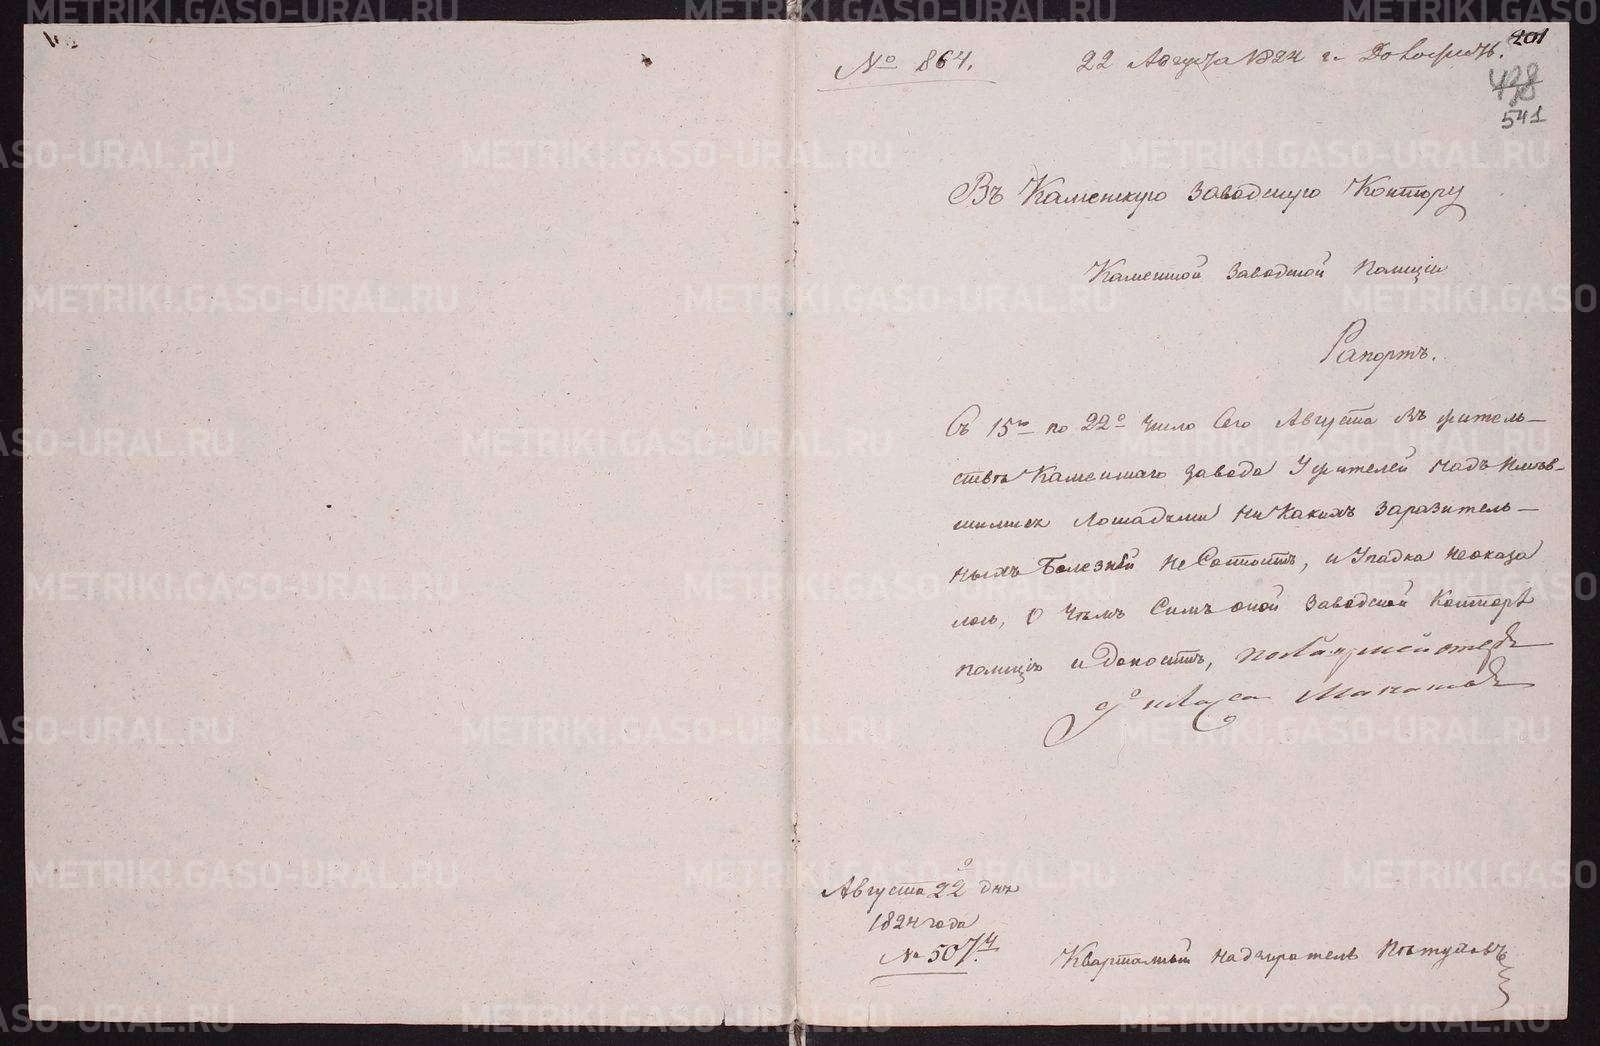 № 864. 22 Августа 1824 г.
201
498
541
Въ Каменскую Заводскую Контору
Каменской Заводской Полиціи
Рапортъ.
Съ 15го по 22е число Сего Августа Въ житель-
ствѣ Каменскаго завода У жителей надъ Имѣв-
шимися Лошадьми Ни Какихъ Заразитель-
ныхъ Болезней не Состоитъ, и Упадка неоказа
лось, О Чѣмъ Симъ оной Заводской Конторѣ
полиція и доноситъ,
Августа 22 дня
1824 года
№ 507.
Квартальный Надзиратель Пѣтуховъ
METRIKI.GASO-URAL.RU